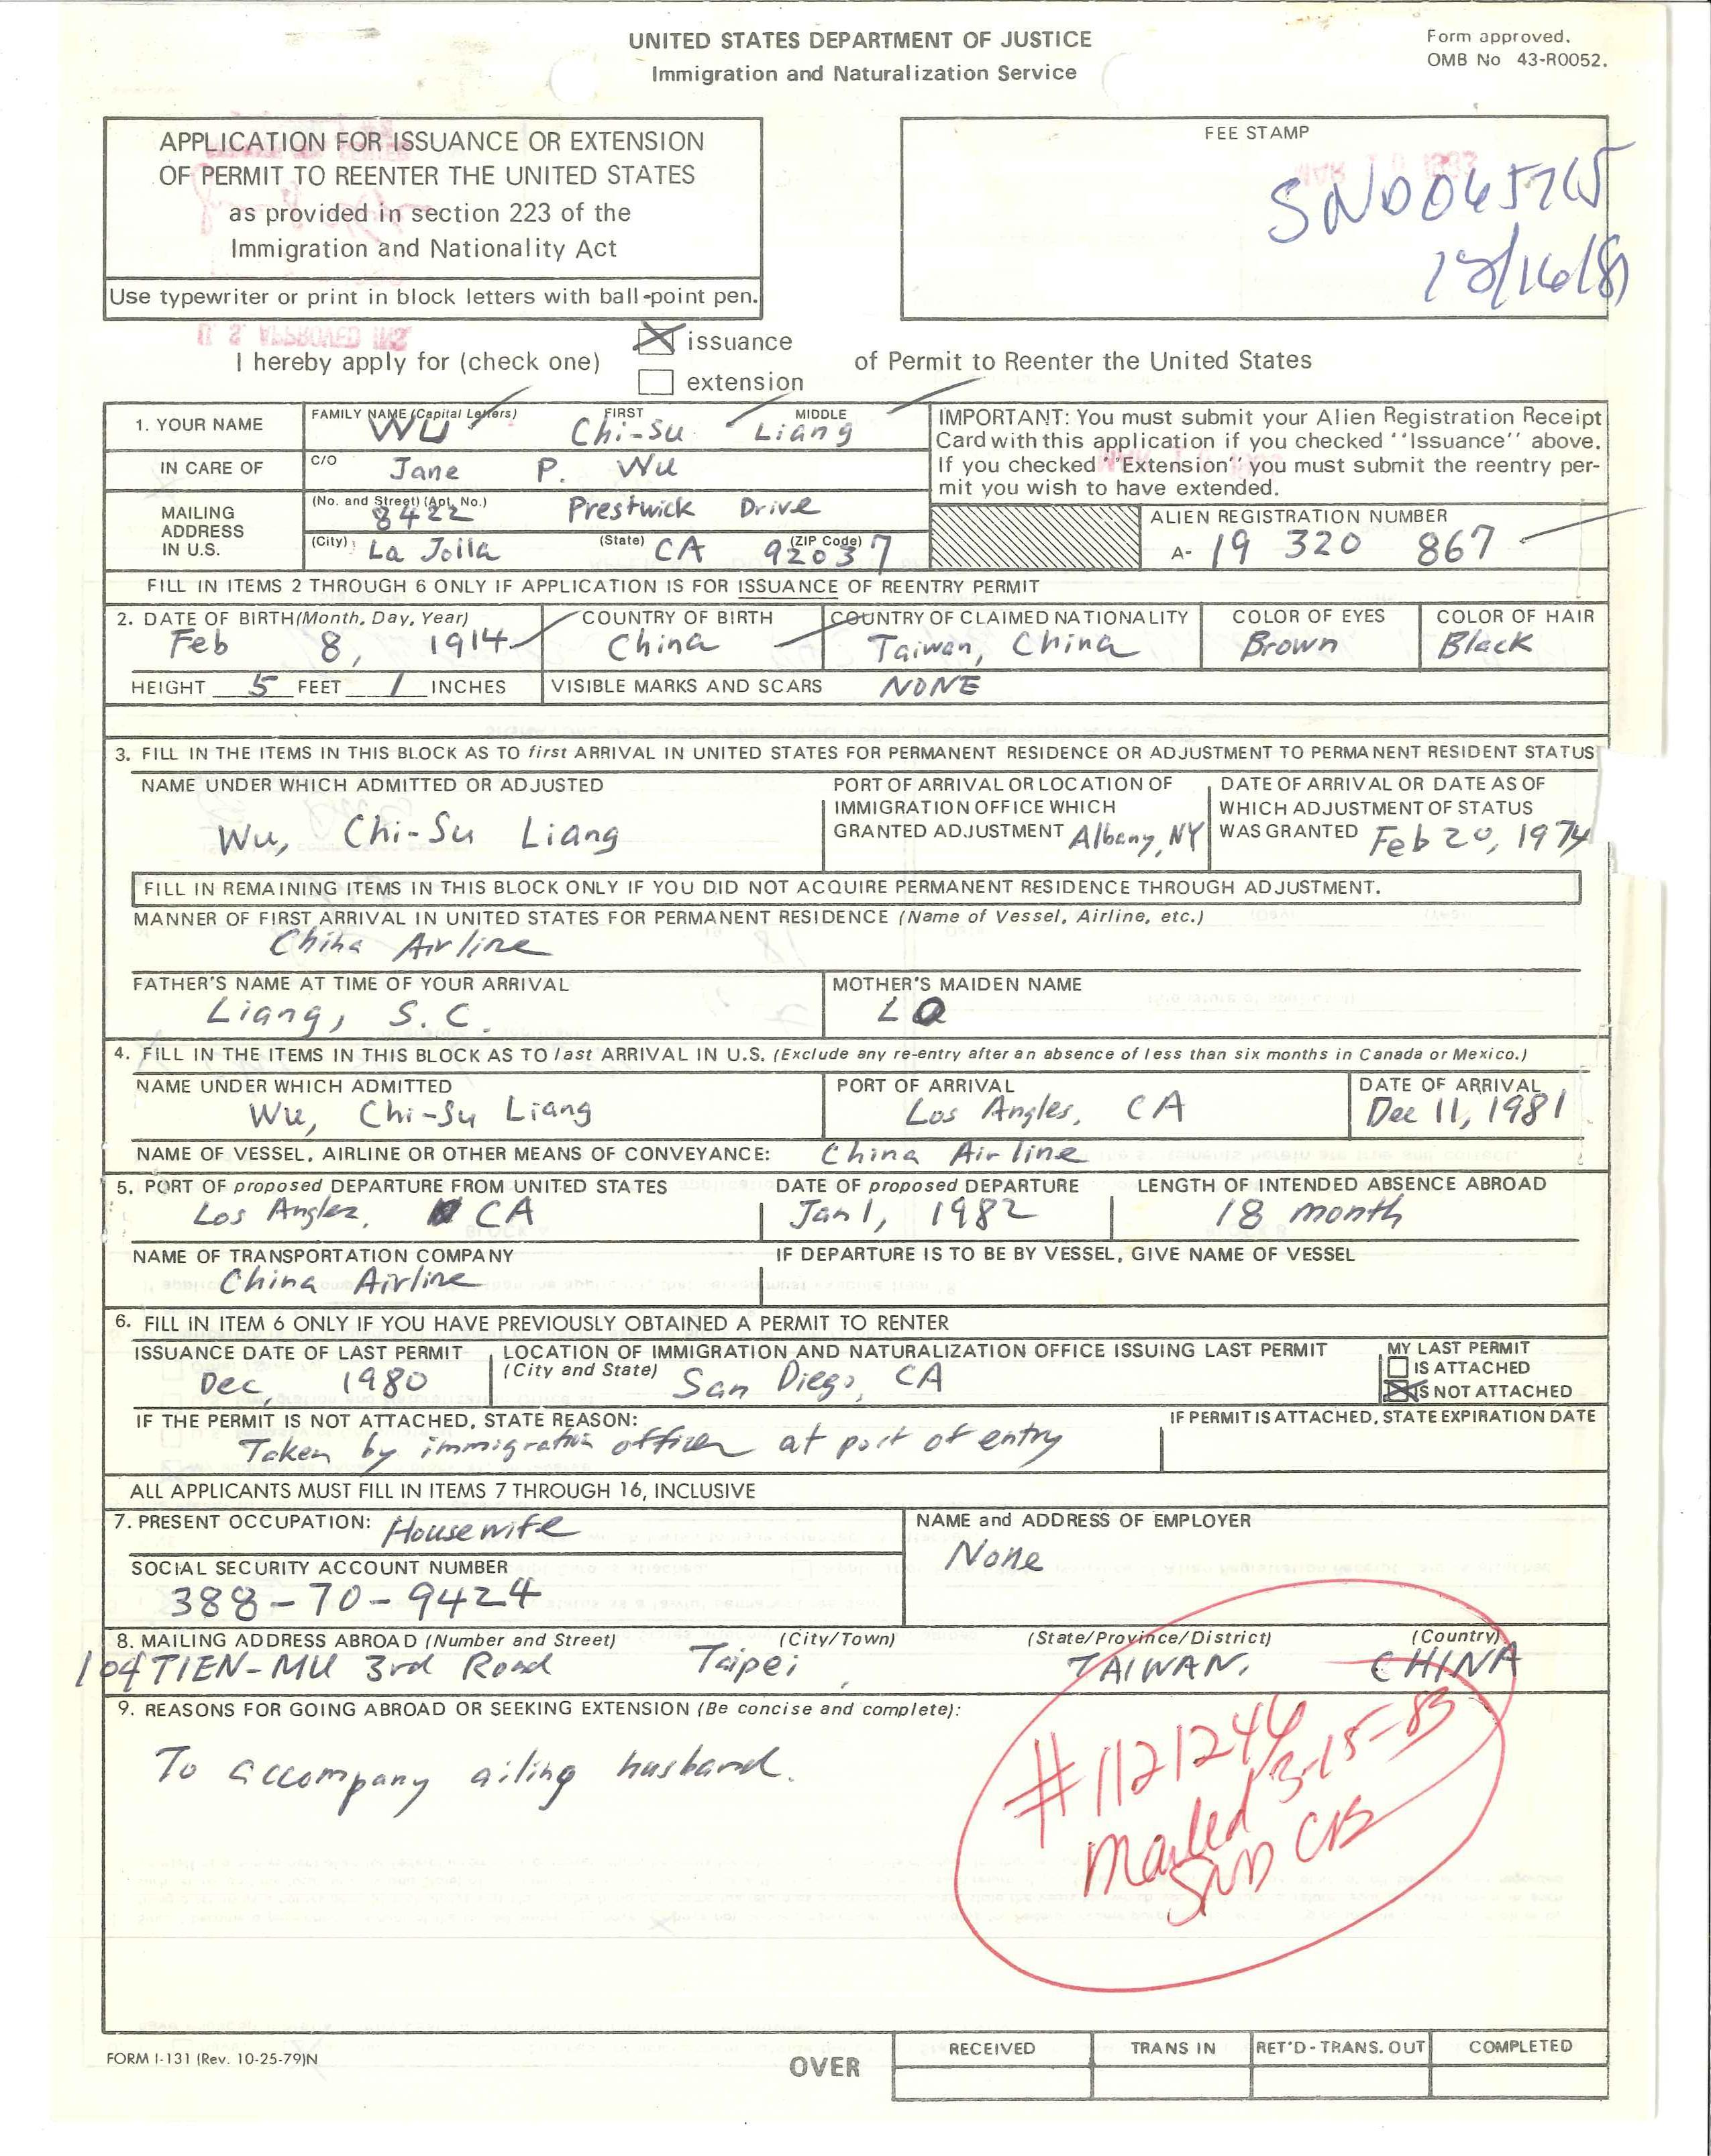 UNITED STATES DEPARTMENT OF JUSTICE
Immigration and Naturalization Service
Form approved.
OMB No 43-R0052.
APPLICATION FOR ISSUANCE OR EXTENSION
OF PERMIT TO REENTER THE UNITED STATES
as provided in section 223 of the
Immigration and Nationality Act
Use typewriter or print in block letters with ball-point pen.
FEE STAMP
I hereby apply for (check one)
issuance
extension
of Permit to Reenter the United States
1. YOUR NAME
FAMILY NAME (Capital Letters) FIRST MIDDLE
WU Chi-Su Liang
IN CARE OF
C/O Jane P. Wu
MAILING
ADDRESS
IN U.S.
(No. and Street) (Apt. No.)
8422 Prestwick Drive
(City) (State) (ZIP Code)
La Jolla CA 92037
IMPORTANT: You must submit your Alien Registration Receipt
Card with this application if you checked ''Issuance'' above.
If you checked ''Extension'' you must submit the reentry per-
mit you wish to have extended.
ALIEN REGISTRATION NUMBER
A- 19 320 867
FILL IN ITEMS 2 THROUGH 6 ONLY IF APPLICATION IS FOR ISSUANCE OF REENTRY PERMIT
2. DATE OF BIRTH (Month, Day, Year) COUNTRY OF BIRTH COUNTRY OF CLAIMED NATIONALITY COLOR OF EYES COLOR OF HAIR
Feb 8, 1914 China Taiwan, China Brown Black
HEIGHT 5 FEET 1 INCHES VISIBLE MARKS AND SCARS NONE
3. FILL IN THE ITEMS IN THIS BLOCK AS TO first ARRIVAL IN UNITED STATES FOR PERMANENT RESIDENCE OR ADJUSTMENT TO PERMANENT RESIDENT STATUS
NAME UNDER WHICH ADMITTED OR ADJUSTED
Wu, Chi-Su Liang
PORT OF ARRIVAL OR LOCATION OF
IMMIGRATION OFFICE WHICH
GRANTED ADJUSTMENT Albany, NY
DATE OF ARRIVAL OR DATE AS OF
WHICH ADJUSTMENT OF STATUS
WAS GRANTED Feb 20, 1974
FILL IN REMAINING ITEMS IN THIS BLOCK ONLY IF YOU DID NOT ACQUIRE PERMANENT RESIDENCE THROUGH ADJUSTMENT.
MANNER OF FIRST ARRIVAL IN UNITED STATES FOR PERMANENT RESIDENCE (Name of Vessel, Airline, etc.)
China Airline
FATHER'S NAME AT TIME OF YOUR ARRIVAL MOTHER'S MAIDEN NAME
Liang, S. C. LO
4. FILL IN THE ITEMS IN THIS BLOCK AS TO last ARRIVAL IN U.S. (Exclude any re-entry after an absence of less than six months in Canada or Mexico.)
NAME UNDER WHICH ADMITTED PORT OF ARRIVAL DATE OF ARRIVAL
Wu, Chi-Su Liang Los Angles, CA Dec 11, 1981
NAME OF VESSEL, AIRLINE OR OTHER MEANS OF CONVEYANCE: China Airline
5. PORT OF proposed DEPARTURE FROM UNITED STATES DATE OF proposed DEPARTURE LENGTH OF INTENDED ABSENCE ABROAD
Los Angles, CA Jan 1, 1982 18 month
NAME OF TRANSPORTATION COMPANY IF DEPARTURE IS TO BE BY VESSEL, GIVE NAME OF VESSEL
China Airline
6. FILL IN ITEM 6 ONLY IF YOU HAVE PREVIOUSLY OBTAINED A PERMIT TO RENTER
ISSUANCE DATE OF LAST PERMIT
Dec, 1980
LOCATION OF IMMIGRATION AND NATURALIZATION OFFICE ISSUING LAST PERMIT
(City and State) San Diego, CA
MY LAST PERMIT
IS ATTACHED
IS NOT ATTACHED
IF THE PERMIT IS NOT ATTACHED, STATE REASON: IF PERMIT IS ATTACHED, STATE EXPIRATION DATE
Taken by immigration officer at port of entry
ALL APPLICANTS MUST FILL IN ITEMS 7 THROUGH 16, INCLUSIVE
7. PRESENT OCCUPATION: Housewife
NAME and ADDRESS OF EMPLOYER
None
SOCIAL SECURITY ACCOUNT NUMBER
388-70-9424
8. MAILING ADDRESS ABROAD (Number and Street) (City/Town) (State/Province/District) (Country)
104 TIEN-MU 3rd Road Taipei, TAIWAN, CHINA
9. REASONS FOR GOING ABROAD OR SEEKING EXTENSION (Be concise and complete):
To accompany ailing husband.
#1121244
Mailed 3-15-83
SND
FORM I-131 (Rev. 10-25-79)N
OVER
RECEIVED TRANS IN RET'D-TRANS. OUT COMPLETED